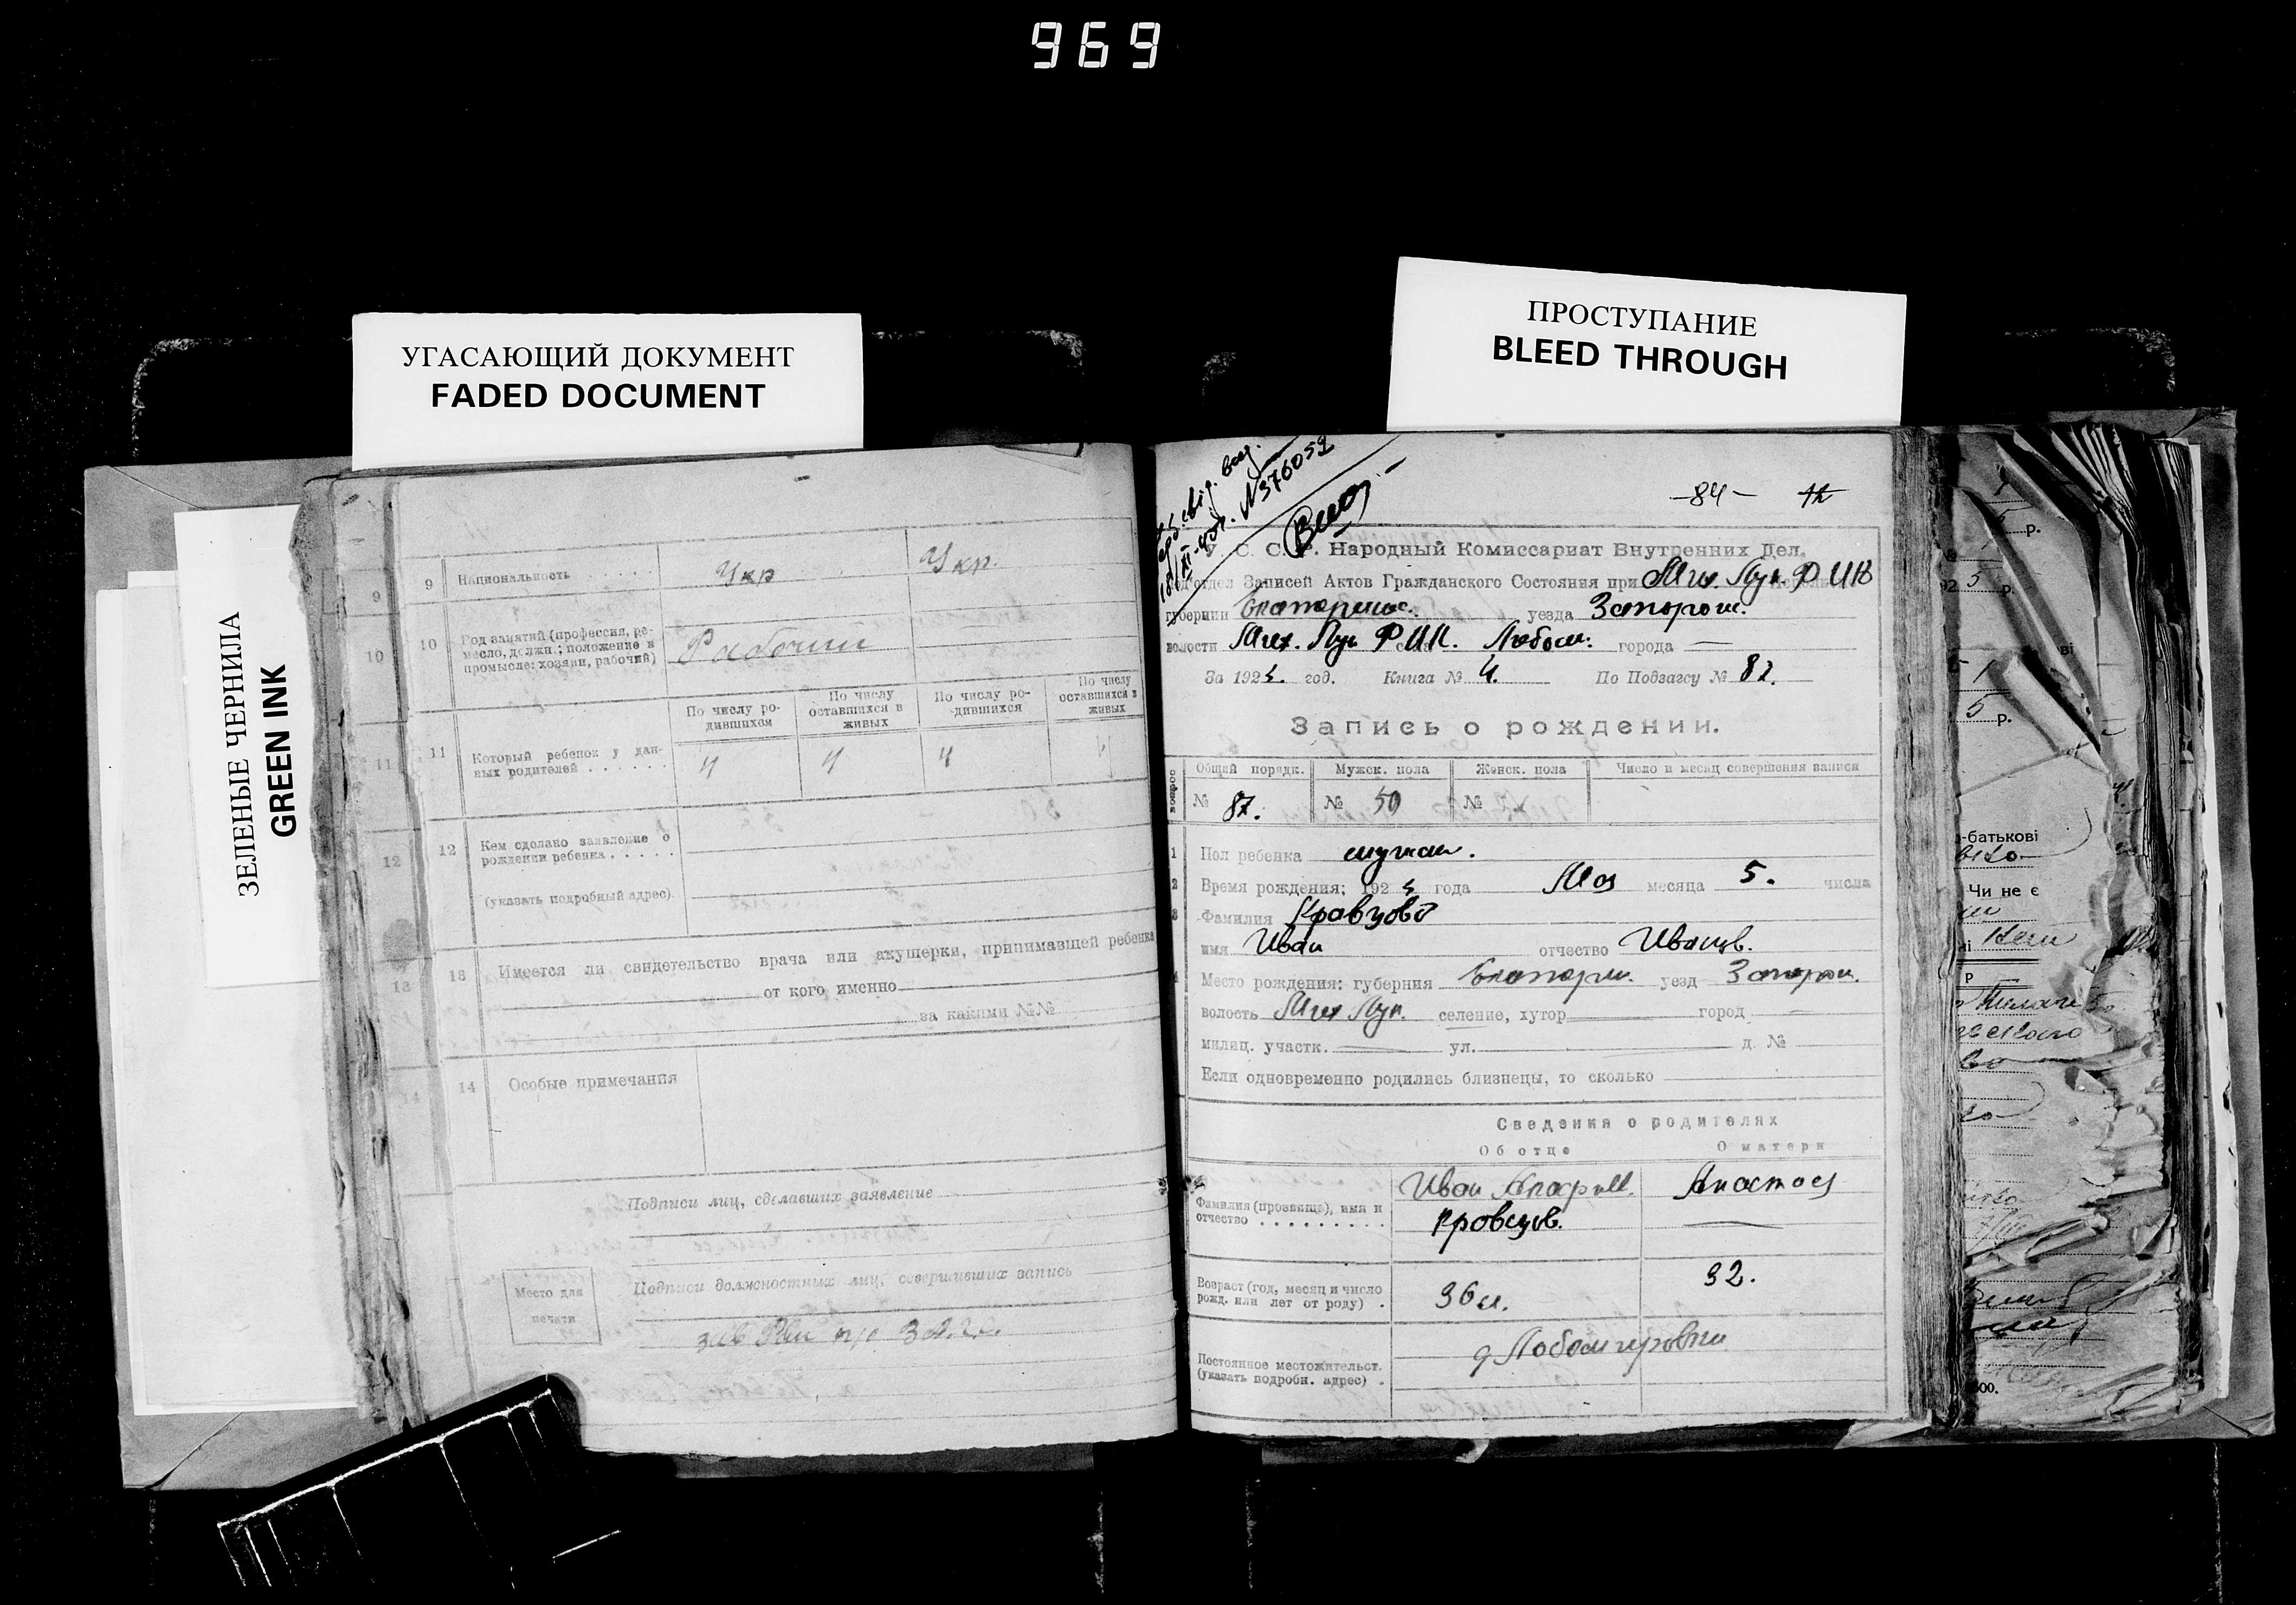 969
УГАСАЮЩИЙ ДОКУМЕНТ
FADED DOCUMENT
ПРОСТУПАНИЕ
BLEED THROUGH
ЗЕЛЕНЫЕ ЧЕРНИЛА
GREEN INK
9 9 Национальность Укр Укр.
10 10 Род занятий (профессия, ре-
месло, должн.; положение в
промысле: хозяин, рабочий) Рабочий
По числу ро-
дившихся
По числу
оставшихся в
живых
По числу ро-
дившихся
По числу
оставшихся в
живых
11 11 Который ребенок у дан-
ных родителей 4 4 4 4
12 12 Кем сделано заявление о
рождении ребенка
(указать подробный адрес)
13 13 Имеется ли свидетельство врача или акушерки, принимавшей ребенка
от кого именно
за какими №№
14 14 Особые примечания
Подписи лиц, сделавших заявление
Подписи должностных лиц, совершивших запись
Место для
печати
N 376052
-84-
У. С. С. Р. Народный Комиссариат Внутренних Дел.
Подотдел Записей Актов Гражданского Состояния при Мих. Лук. РИК
губернии Екатеринос. уезда Запорож.
волости Мих. Лук РИК. Любом. города —
За 1925. год. Книга № 4. По Подзагсу № 82.
Запись о рождении.
Общий порядк. Мужск. пола Женск. пола Число и месяц совершения записи
№ 87. № 50 №
1 Пол ребенка мужск.
2 Время рождения: 1925 года Мая месяца 5. числа
3 Фамилия Кравцов
имя Иван отчество Иванов.
4 Место рождения: губерния Екатерин. уезд Запорож.
волость Мих Лук. селение, хутор город —
милиц. участк. — ул. — д. №
Если одновременно родились близнецы, то сколько
Сведения о родителях
Об отце О матери
Фамилия (прозвище), имя и
отчество
Иван
Кровцов.
Анастас
Возраст (год, месяц и число
рожд. или лет от роду) 36 л. 32.
Постоянное местожительст.
(указать подробн. адрес)
р.
5 р.
1
5 р.
-батькові
Чи не є